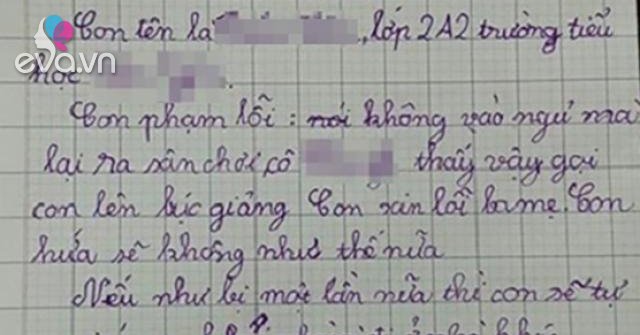 eva.vn
Con tên là , lớp 2A2 trường tiểu
học .
Con phạm lỗi : nói không vào ngủ mà
lại ra sân chơi cô thấy vậy gọi
con lên bục giảng Con xin lỗi ba mẹ. Con
hứa sẽ không như thế nữa
Nếu như bị một lần nữa thì con sẽ tự